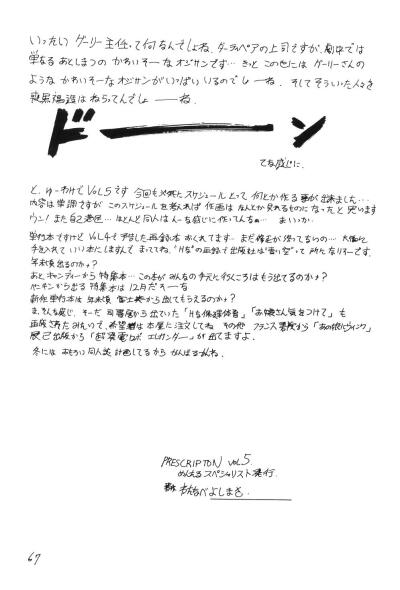 いったい ゲーリー主任って何なんでしょね. ダーティペアの上司ですが, 劇中では
単なるあとしまつの かわいそーなオジサンです… きっと この世には ゲーリーさんの
ような かわいそーな オジサンが いっぱい いるのでしょーね. そして そういった人々を
喪黒福造は ねらってんでしょ ーーね.
ドーーン
てな感じに.
と, ゆーわけで VOL.5です 今回も スケジュールとって 何とか作る事が出来ました…
内容は単調ですが このスケジュールを考えれば 作画は なんとか見れるものに なったと思います
ウン! また自己満足… ほとんど同人は んーな感じに作ってんなぁ… まいっか.
単行本ですけど VOL.4で予告した再録本 おくれてます. まだ修正が残ってるんの…
手を入れて いい本にしますんで まっててね.
年末頃出るのかナ?
あと, キャンディーから 特集本… この本が みんなの手元に行くころは もう出てるのかナ?
から出る 特集本は 12月だそーな
新作単行本は 年末頃 富士美から出てもらえるのか?
ま, そんな感じ, そーだ 司書房から出ていた「Hな保健体育」「お嬢さん気をつけて」も
再版された みたいで, 希望者は 本屋に注文してね その他 フランス書院から
辰巳出版から が出てますよ.
冬には おもろい 同人誌 計画してるから がんばるかんね.
PRESCRIPTON VOL.5
めんたるスペシャリスト 発行.
わたなべよしまさ.
67